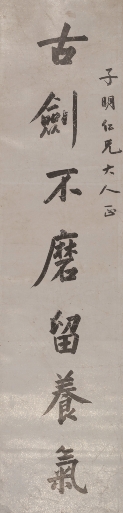 子明仁兄大人正
古劍不磨留養氣